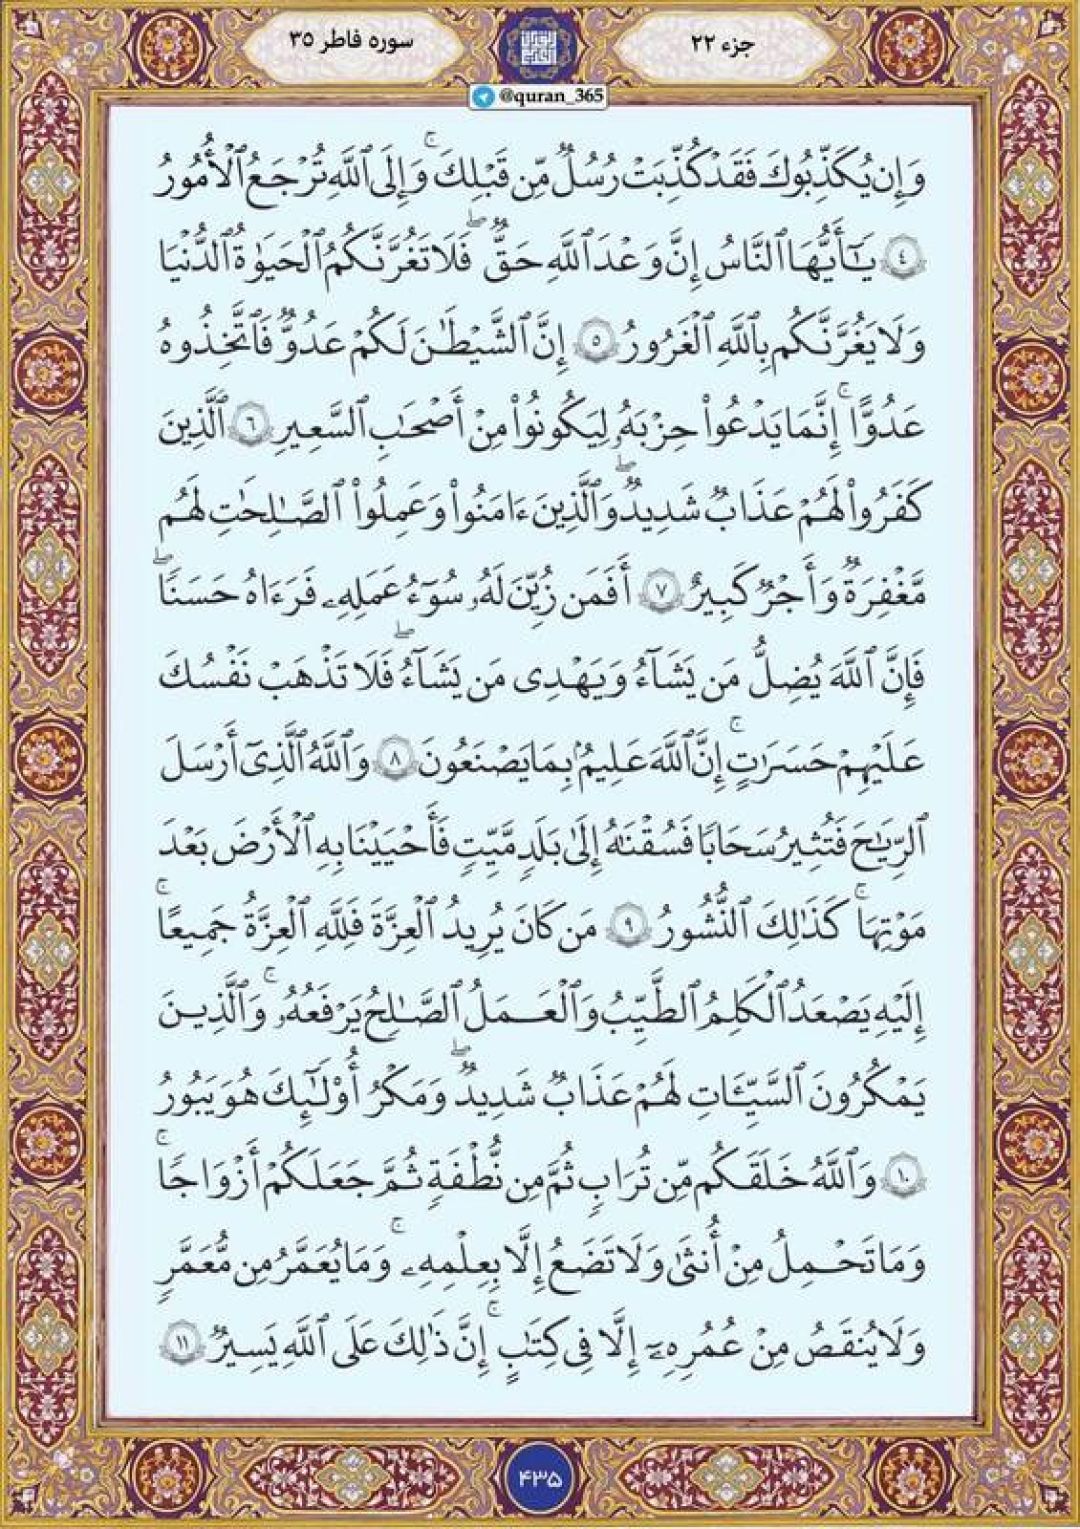 جزء ۲۲
سوره فاطر ۳۵
@quran_365
وَإِن يُكَذِّبُوكَ فَقَدْ كُذِّبَتْ رُسُلٌ مِّن قَبْلِكَ ۚ وَإِلَى ٱللَّهِ تُرْجَعُ ٱلْأُمُورُ
٤ يَـٰٓأَيُّهَا ٱلنَّاسُ إِنَّ وَعْدَ ٱللَّهِ حَقٌّ ۖ فَلَا تَغُرَّنَّكُمُ ٱلْحَيَوٰةُ ٱلدُّنْيَا
وَلَا يَغُرَّنَّكُم بِٱللَّهِ ٱلْغَرُورُ ٥ إِنَّ ٱلشَّيْطَـٰنَ لَكُمْ عَدُوٌّ فَٱتَّخِذُوهُ
عَدُوًّا ۚ إِنَّمَا يَدْعُوا۟ حِزْبَهُۥ لِيَكُونُوا۟ مِنْ أَصْحَـٰبِ ٱلسَّعِيرِ ٦ ٱلَّذِينَ
كَفَرُوا۟ لَهُمْ عَذَابٌ شَدِيدٌ ۖ وَٱلَّذِينَ ءَامَنُوا۟ وَعَمِلُوا۟ ٱلصَّـٰلِحَـٰتِ لَهُم
مَّغْفِرَةٌ وَأَجْرٌ كَبِيرٌ ٧ أَفَمَن زُيِّنَ لَهُۥ سُوٓءُ عَمَلِهِۦ فَرَءَاهُ حَسَنًا ۖ
فَإِنَّ ٱللَّهَ يُضِلُّ مَن يَشَآءُ وَيَهْدِى مَن يَشَآءُ ۖ فَلَا تَذْهَبْ نَفْسُكَ
عَلَيْهِمْ حَسَرَٰتٍ ۚ إِنَّ ٱللَّهَ عَلِيمٌۢ بِمَا يَصْنَعُونَ ٨ وَٱللَّهُ ٱلَّذِىٓ أَرْسَلَ
ٱلرِّيَـٰحَ فَتُثِيرُ سَحَابًا فَسُقْنَـٰهُ إِلَىٰ بَلَدٍ مَّيِّتٍ فَأَحْيَيْنَا بِهِ ٱلْأَرْضَ بَعْدَ
مَوْتِهَا ۚ كَذَٰلِكَ ٱلنُّشُورُ ٩ مَن كَانَ يُرِيدُ ٱلْعِزَّةَ فَلِلَّهِ ٱلْعِزَّةُ جَمِيعًا ۚ
إِلَيْهِ يَصْعَدُ ٱلْكَلِمُ ٱلطَّيِّبُ وَٱلْعَمَلُ ٱلصَّـٰلِحُ يَرْفَعُهُۥ ۚ وَٱلَّذِينَ
يَمْكُرُونَ ٱلسَّيِّـَٔاتِ لَهُمْ عَذَابٌ شَدِيدٌ ۖ وَمَكْرُ أُو۟لَـٰٓئِكَ هُوَ يَبُورُ
١٠ وَٱللَّهُ خَلَقَكُم مِّن تُرَابٍ ثُمَّ مِن نُّطْفَةٍ ثُمَّ جَعَلَكُمْ أَزْوَاجًا ۚ
وَمَا تَحْمِلُ مِنْ أُنثَىٰ وَلَا تَضَعُ إِلَّا بِعِلْمِهِۦ ۚ وَمَا يُعَمَّرُ مِن مُّعَمَّرٍ
وَلَا يُنقَصُ مِنْ عُمُرِهِۦٓ إِلَّا فِى كِتَـٰبٍ ۚ إِنَّ ذَٰلِكَ عَلَى ٱللَّهِ يَسِيرٌ ١١
۴۳۵